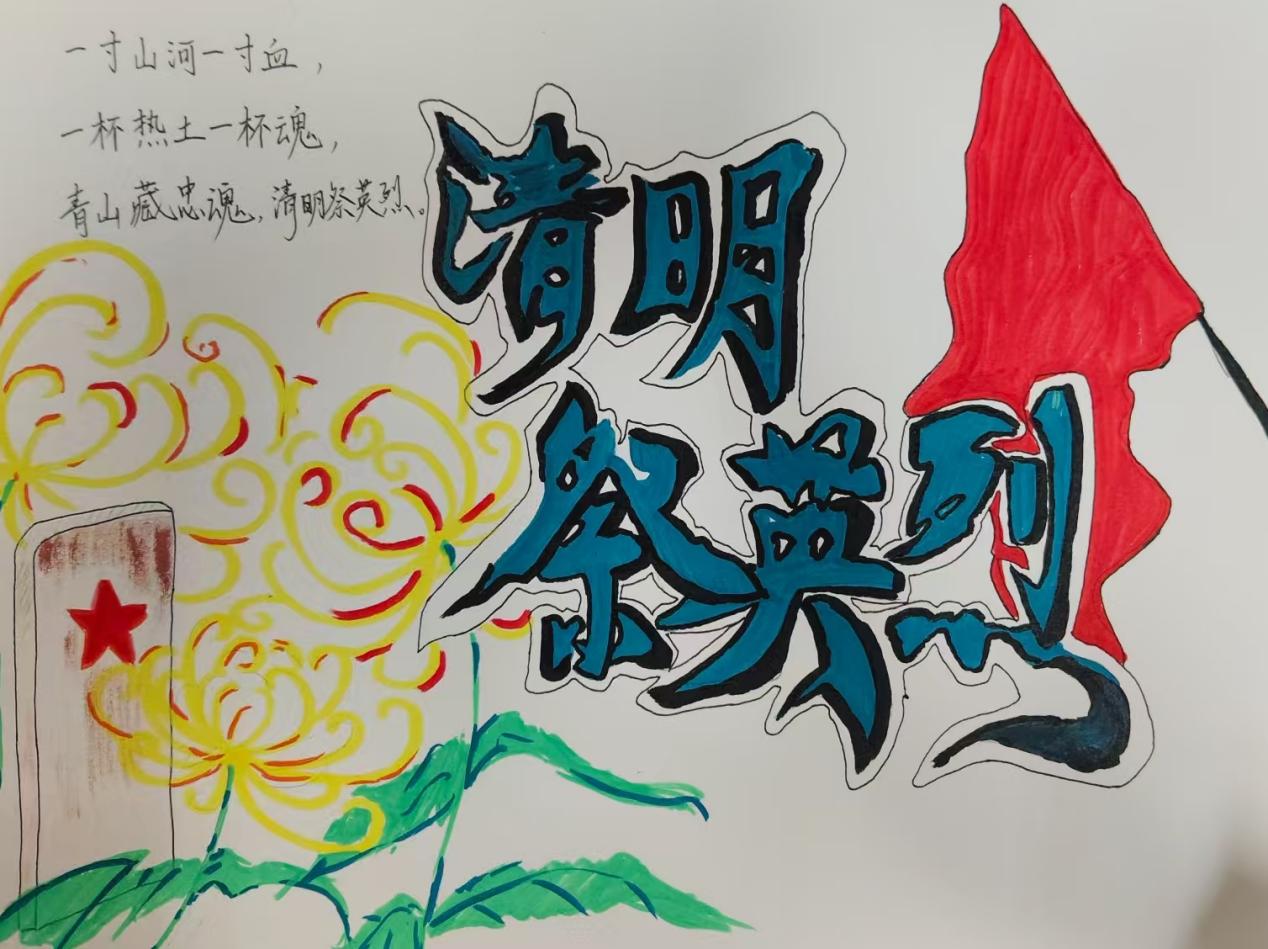 一寸山河一寸血，
一杯热土一杯魂，
青山藏忠魂，清明祭英烈。
清明
祭英烈